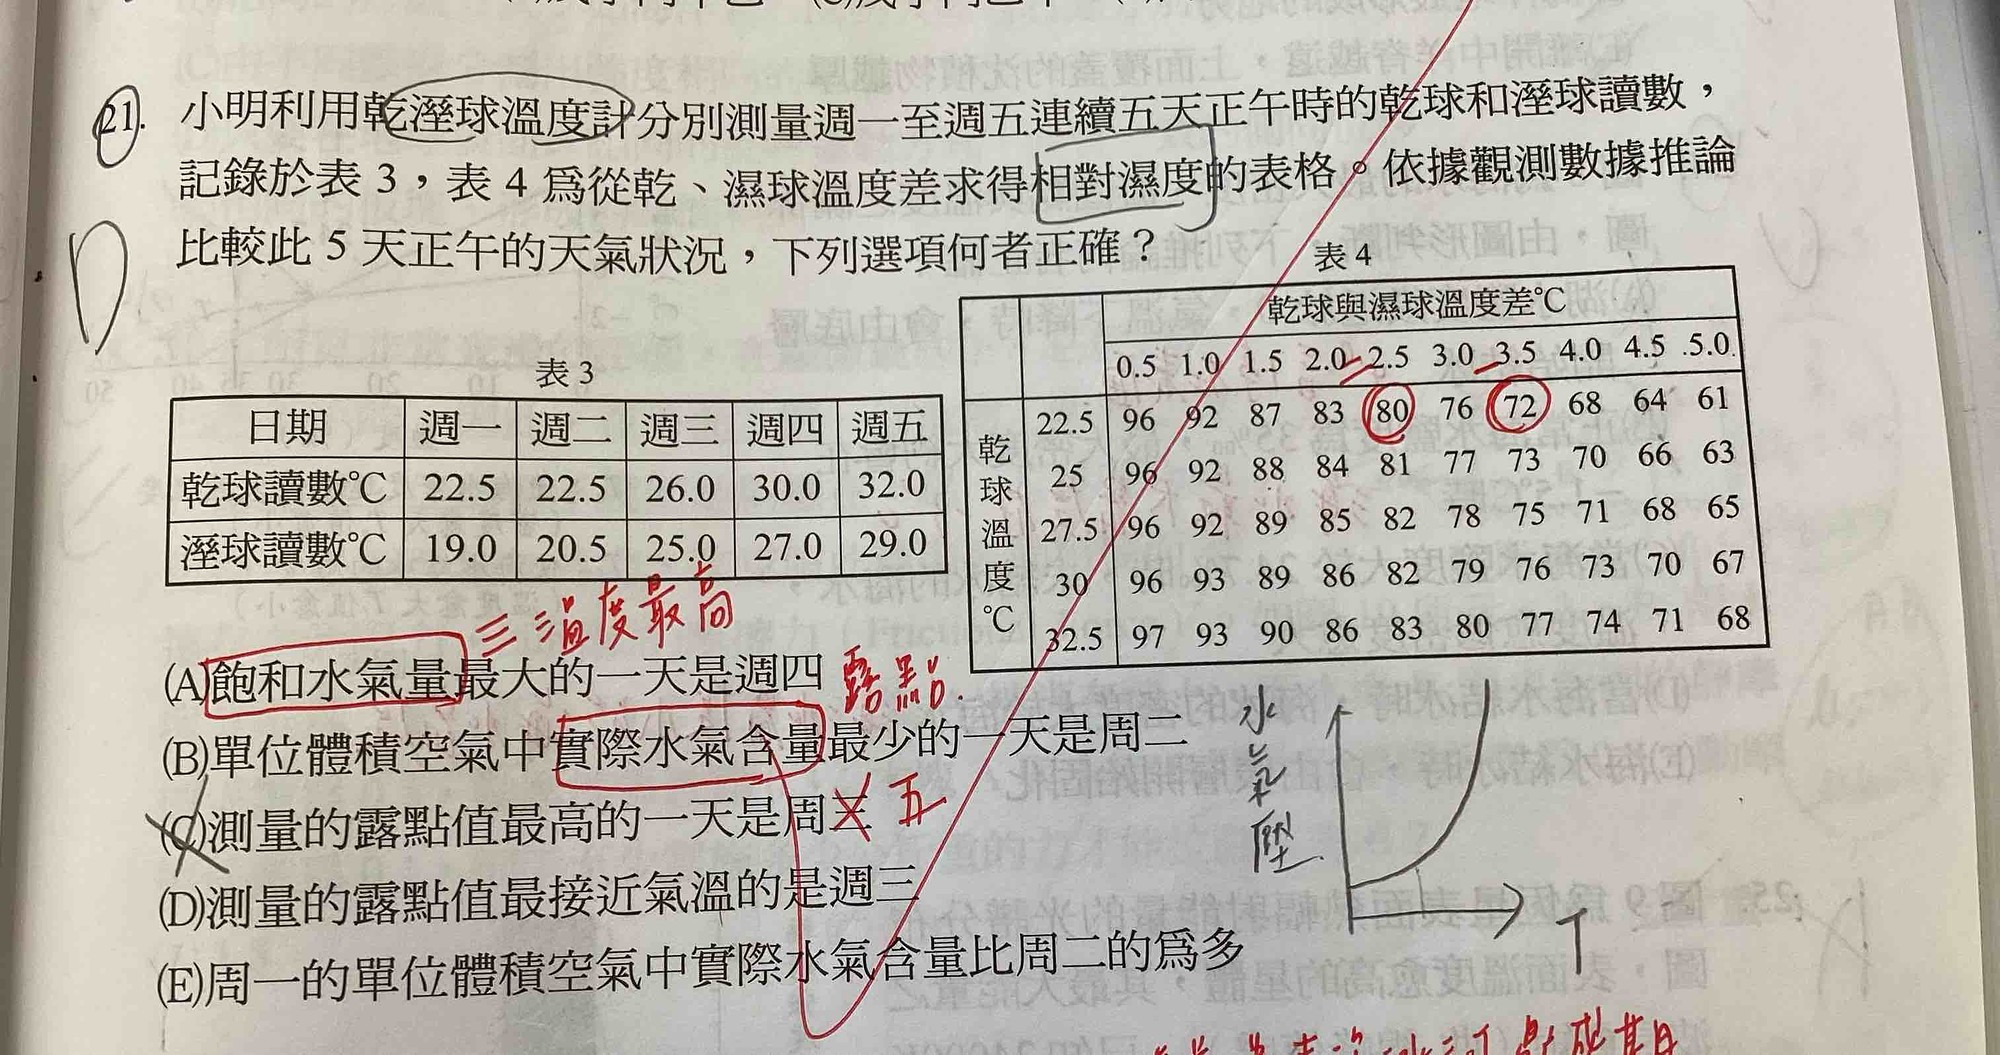 21. 小明利用乾溼球溫度計分別測量週一至週五連續五天正午時的乾球和溼球讀數，
記錄於表3，表4爲從乾、濕球溫度差求得相對濕度的表格。依據觀測數據推論
比較此5天正午的天氣狀況，下列選項何者正確？
D
表3
日期 週一 週二 週三 週四 週五
乾球讀數℃ 22.5 22.5 26.0 30.0 32.0
溼球讀數℃ 19.0 20.5 25.0 27.0 29.0
表4
乾球與濕球溫度差℃
0.5 1.0 1.5 2.0 2.5 3.0 3.5 4.0 4.5 5.0
乾球溫度℃
22.5 96 92 87 83 80 76 72 68 64 61
25 96 92 88 84 81 77 73 70 66 63
27.5 96 92 89 85 82 78 75 71 68 65
30 96 93 89 86 82 79 76 73 70 67
32.5 97 93 90 86 83 80 77 74 71 68
三溫度最高
(A)飽和水氣量最大的一天是週四
露點
(B)單位體積空氣中實際水氣含量最少的一天是周二
(C)測量的露點值最高的一天是周三
五
(D)測量的露點值最接近氣溫的是週三
(E)周一的單位體積空氣中實際水氣含量比周二的爲多
水氣壓
T